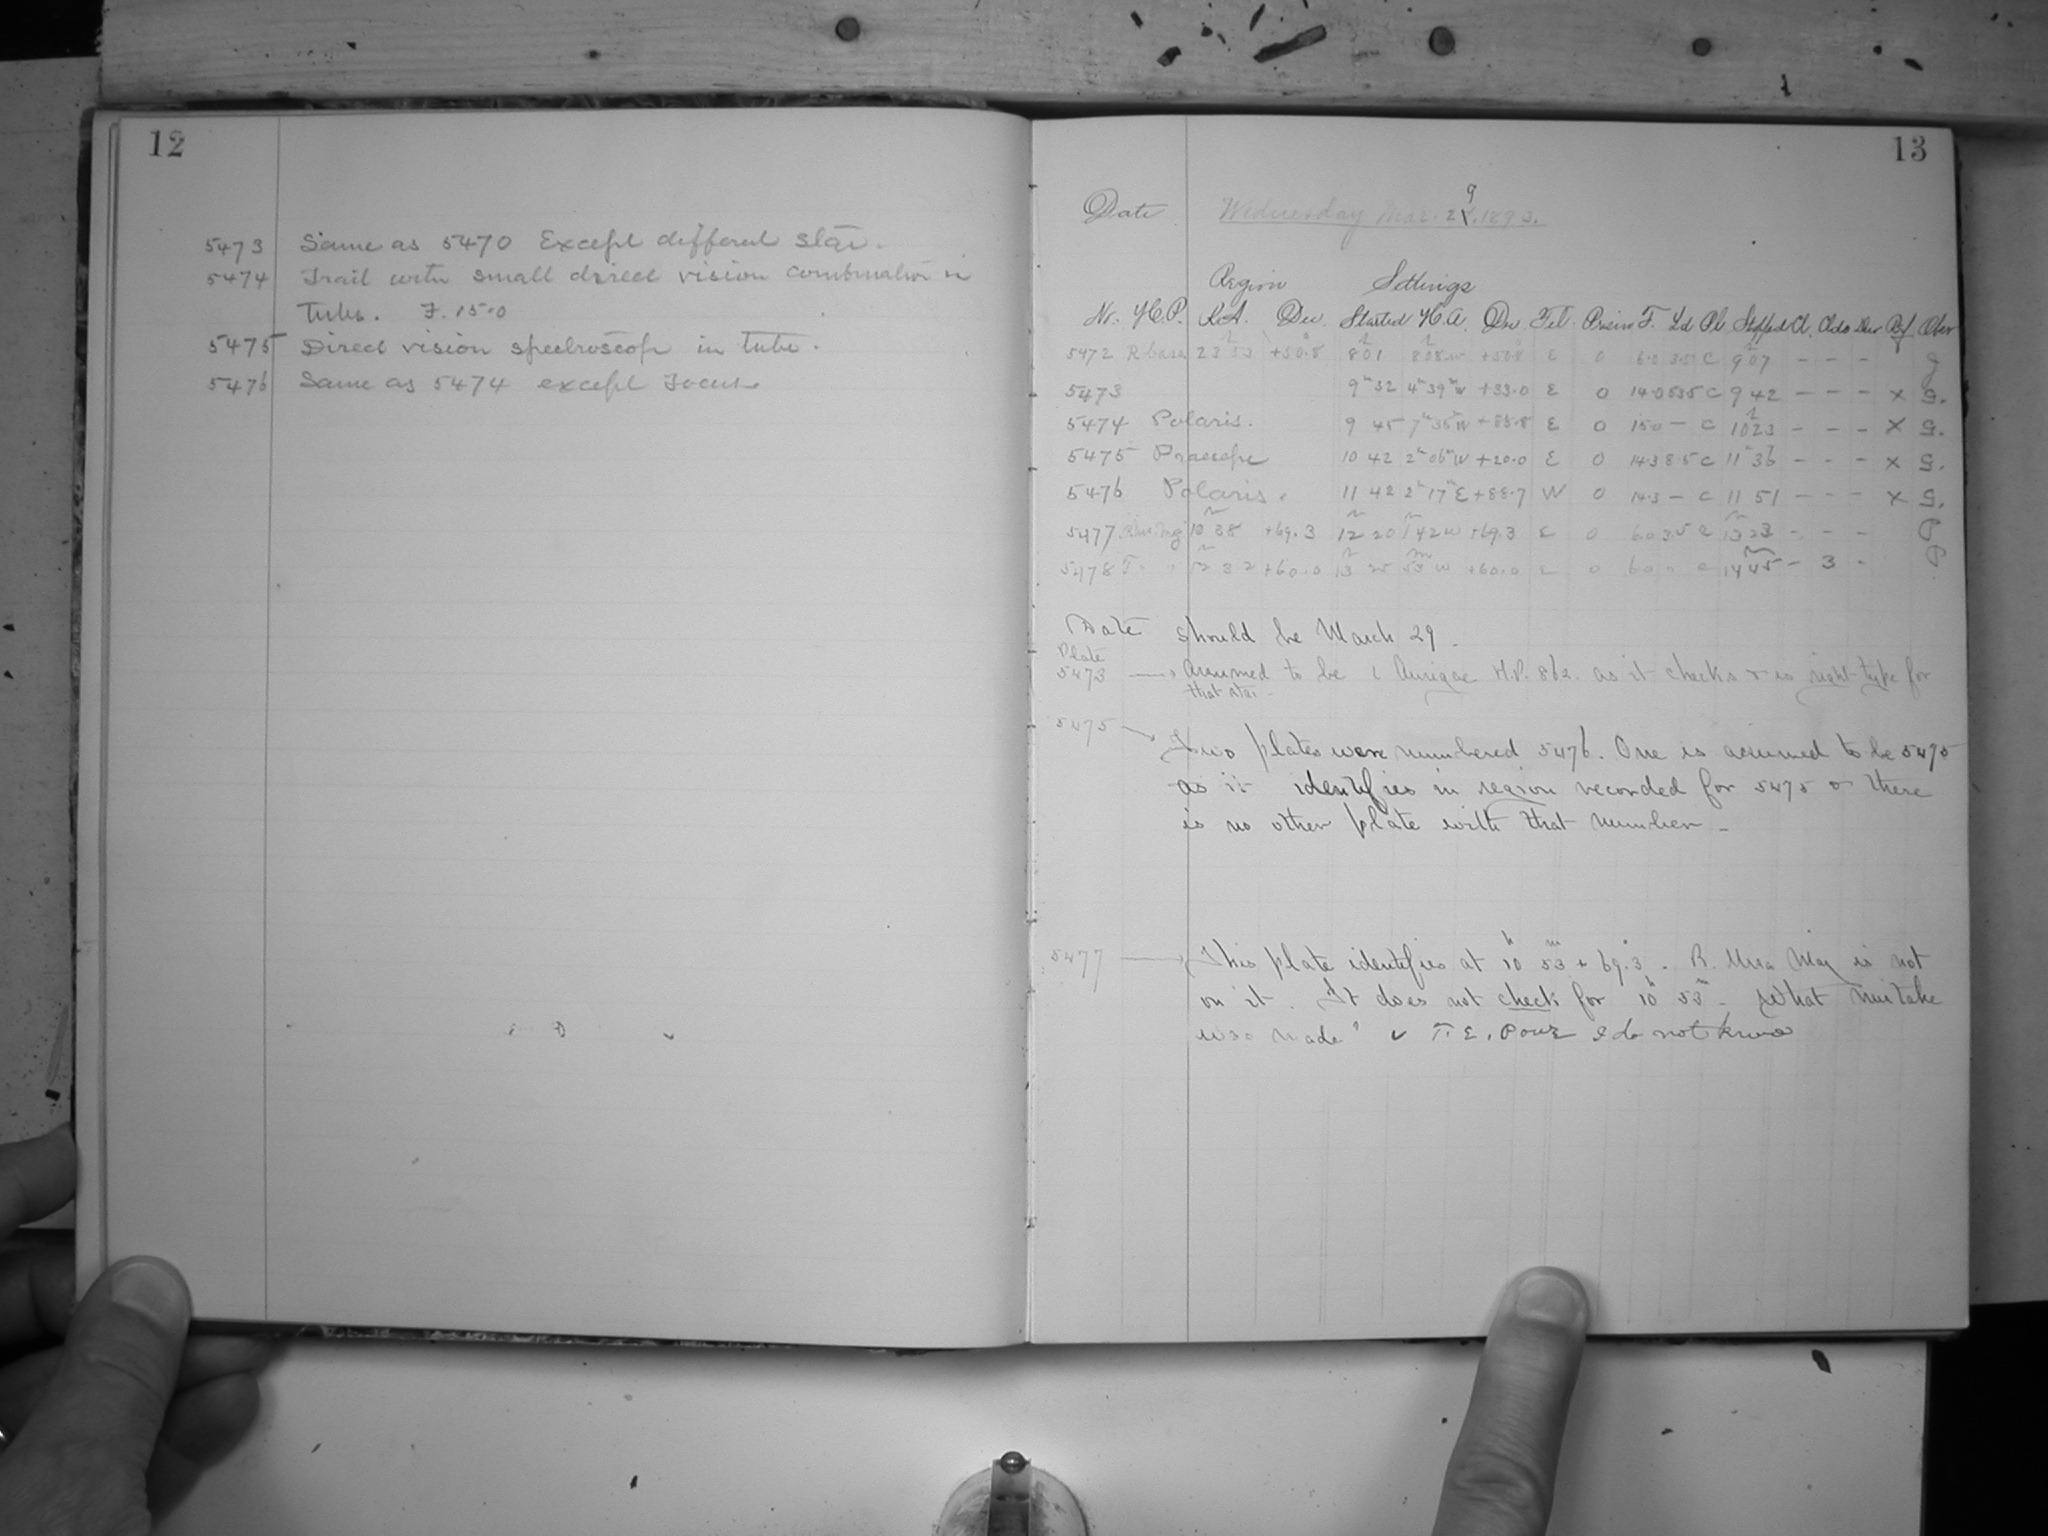 12
5473 Same as 5470 Except different star.
5474 Trail with small direct vision combination in
Tube. F. 15.0
5475 Direct vision spectroscope in tube.
5476 Same as 5474 except Focus
13
Date Wednesday Mar. 29, 1893.
Region Settings
Nr. H.P. R.A. Dec. Started H.A. Dec. Tel. Prism F. Ld Pl Stopped Cl. Clds Dew Rf Obsr
5472 R Cass 23 53 +50.8 8 01 8 08 W +50.8 E 0 6.0 35 C 9 07 - - -
5473 9h 32 4h 39m W +33.0 E 0 14.0 535 C 9 42 - - - X G.
5474 Polaris. 9 45 7h 35m W +85.8 E 0 15.0 - C 10 23 - - - X G.
5475 Praesepe 10 42 2h 06m W +20.0 E 0 14.3 8.5 C 11h 36 - - - X G.
5476 Polaris. 11 42 2h 17m E +88.7 W 0 14.3 - C 11 51 - - - X G.
5477 10 38 +69.3 12 20 1 42 W +69.3 E 0 6.0 35 C 13 23 - - - P
5478 12 32 +60.0 13 25 53 W +60.0 E 0 60 C 14 45 - 3 - P
Date should be March 29.
Plate
5473 → Assumed to be ι Aurigae H.P. 862. as it checks & is right type for
that star -
5475 →
Two plates were numbered 5476. One is assumed to be 5475
as it identifies in region recorded for 5475 & there
is no other plate with that number -
5477 → This plate identifies at 10h 53m + 69°.3. R. Ursa Maj is not
on it. It does not check for 10h 53m - What mistake
was made? ✓ T. E. Pour I do not know